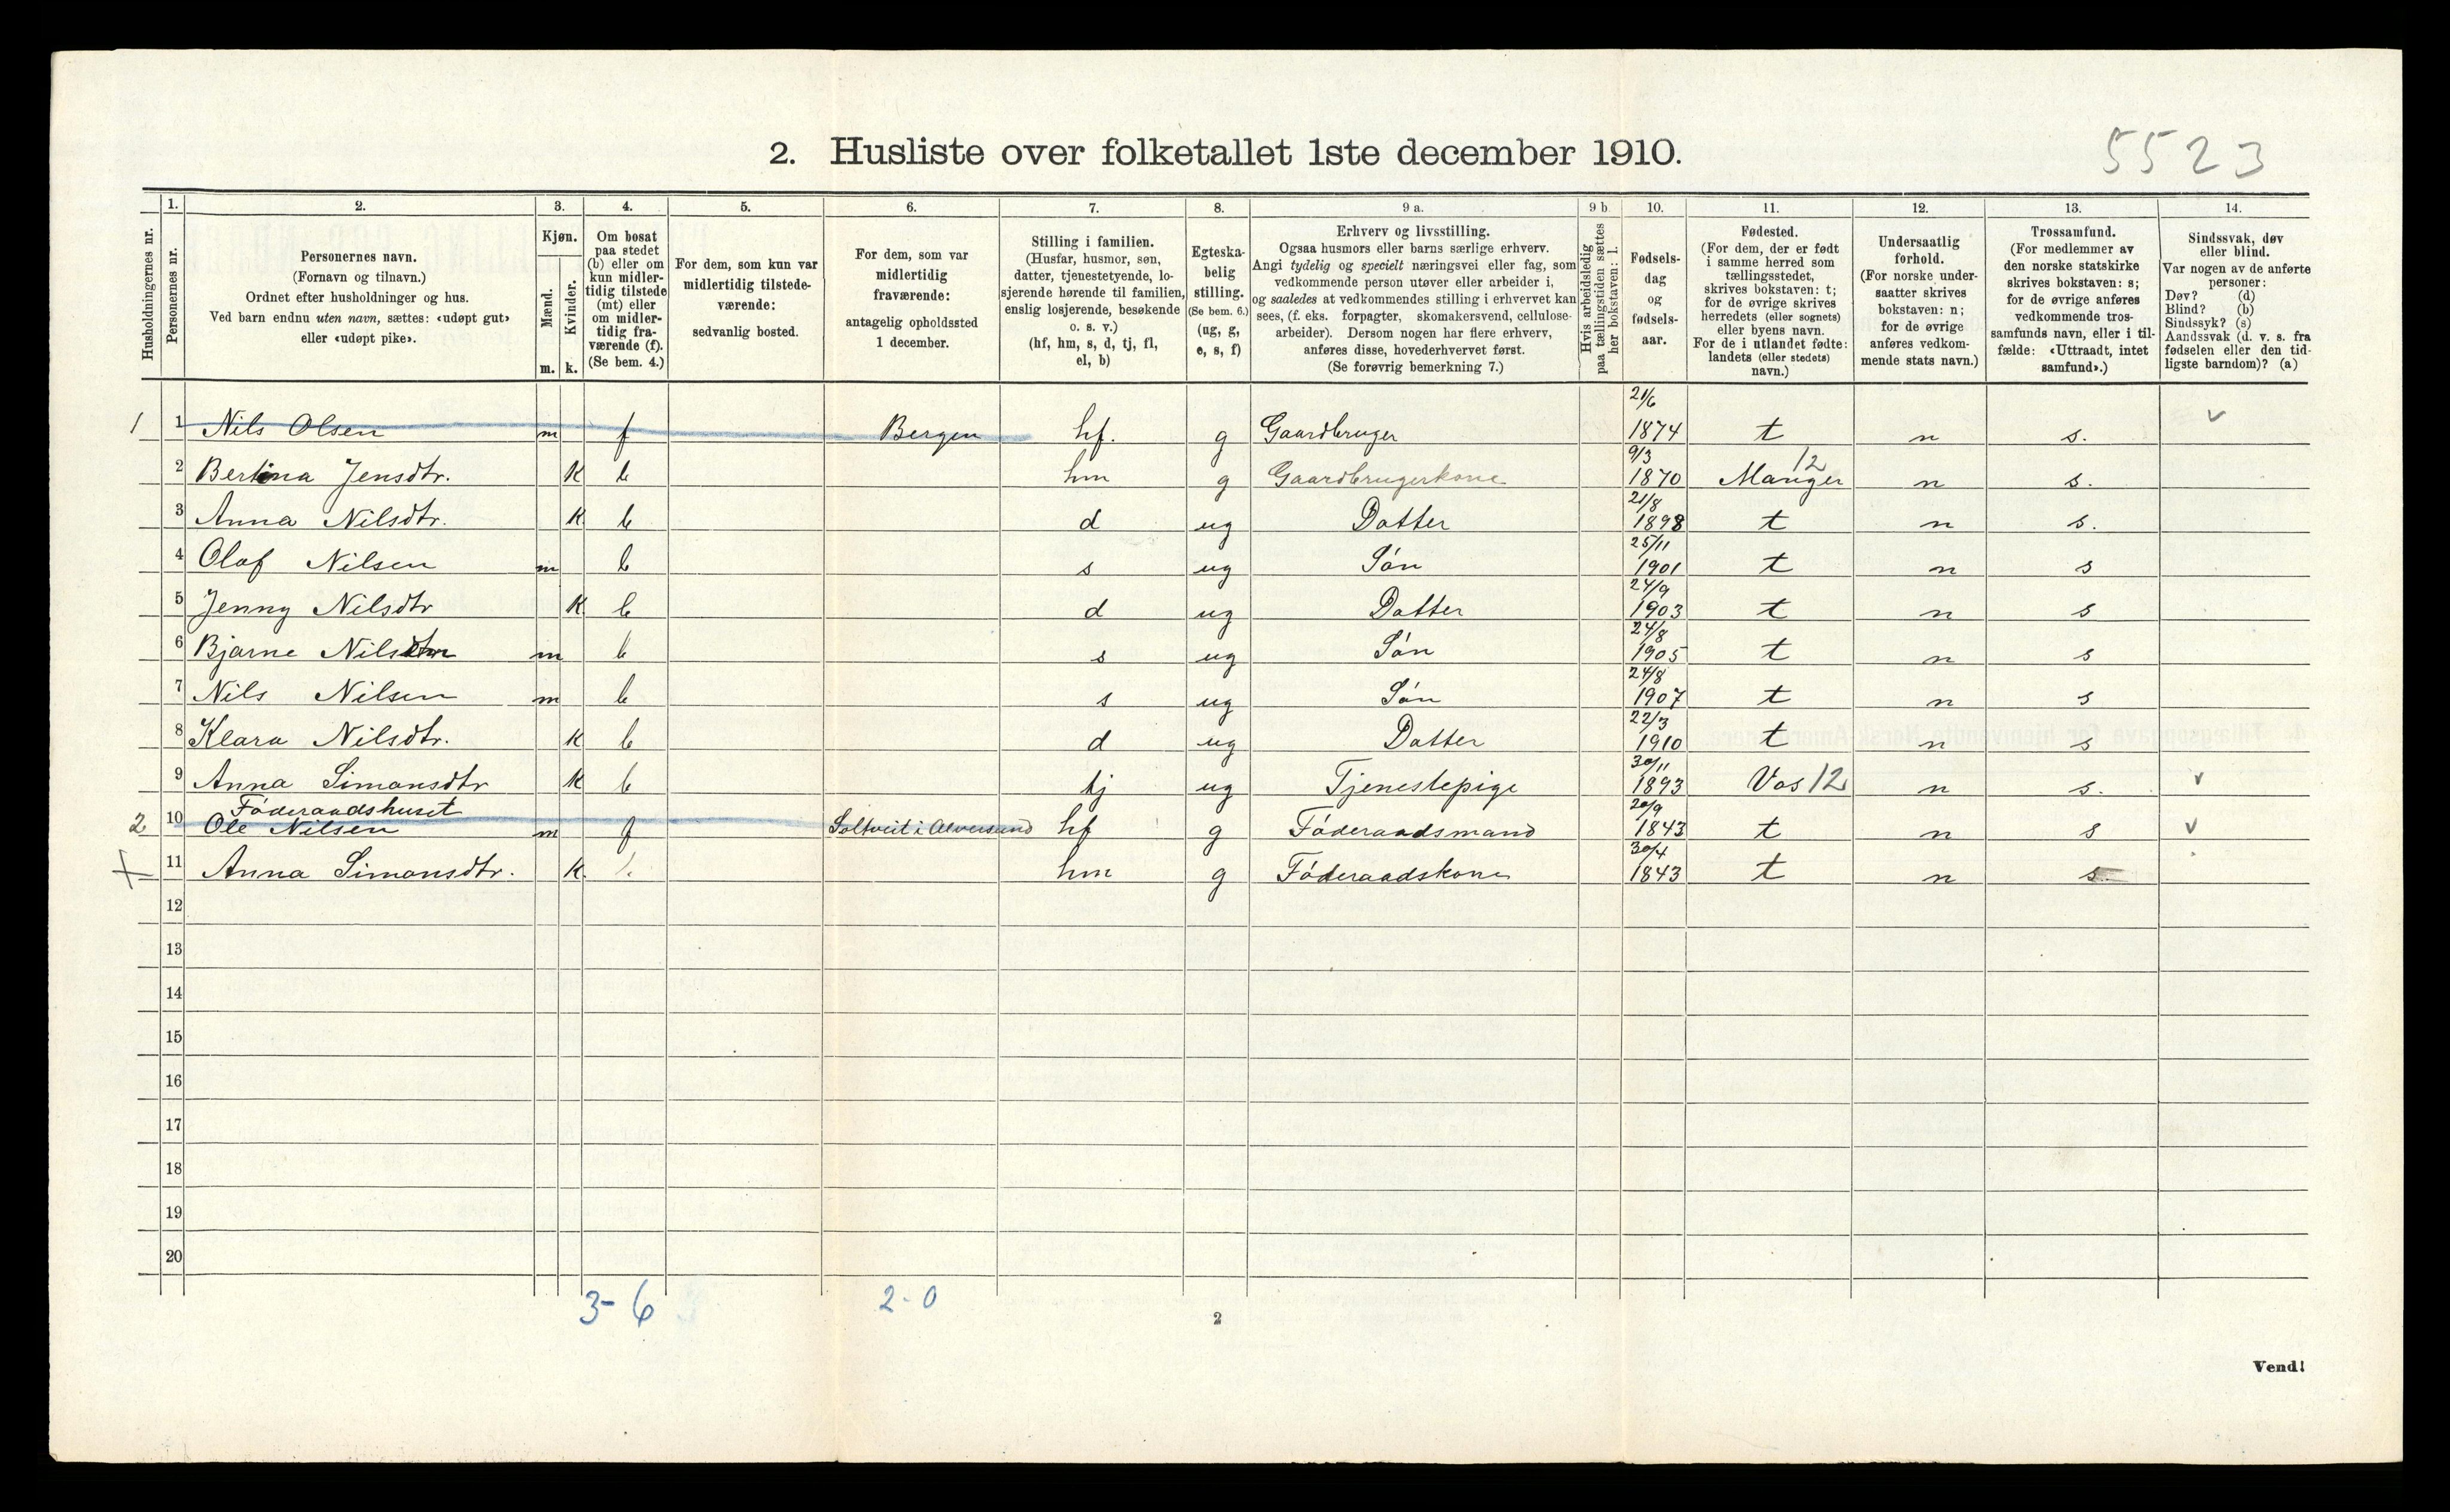 5523
2. Husliste over folketallet 1ste december 1910.
Husholdningernes nr.
1. Personernes nr.
2. Personernes navn.
(Fornavn og tilnavn.)
Ordnet efter husholdninger og hus.
Ved barn endnu uten navn, sættes: «udøpt gut»
eller «udøpt pike».
3. Kjøn.
Mænd. Kvinder.
m. k.
4. Om bosat
paa stedet
(b) eller om
kun midler-
tidig tilstede
(mt) eller
om midler-
tidig fra-
værende (f).
(Se bem. 4.)
5. For dem, som kun var
midlertidig tilstede-
værende:
sedvanlig bosted.
6. For dem, som var
midlertidig
fraværende:
antagelig opholdssted
1 december.
7. Stilling i familien.
(Husfar, husmor, søn,
datter, tjenestetyende, lo-
sjerende hørende til familien,
enslig losjerende, besøkende
o. s. v.)
(hf, hm, s, d, tj, fl,
el, b)
8. Egteska-
belig
stilling.
(Se bem. 6.)
(ug, g,
e, s, f)
9 a. Erhverv og livsstilling.
Ogsaa husmors eller barns særlige erhverv.
Angi tydelig og specielt næringsvei eller fag, som
vedkommende person utøver eller arbeider i,
og saaledes at vedkommendes stilling i erhvervet kan
sees, (f. eks. forpagter, skomakersvend, cellulose-
arbeider). Dersom nogen har flere erhverv,
anføres disse, hovederhvervet først.
(Se forøvrig bemerkning 7.)
9 b Hvis arbeidsledig
paa tællingstiden sættes
her bokstaven: l.
10. Fødsels-
dag
og
fødsels-
aar.
11. Fødested.
(For dem, der er født
i samme herred som
tællingsstedet,
skrives bokstaven: t;
for de øvrige skrives
herredets (eller sognets)
eller byens navn.
For de i utlandet fødte:
landets (eller stedets)
navn.)
12. Undersaatlig
forhold.
(For norske under-
saatter skrives
bokstaven: n;
for de øvrige
anføres vedkom-
mende stats navn.)
13. Trossamfund.
(For medlemmer av
den norske statskirke
skrives bokstaven: s;
for de øvrige anføres
vedkommende tros-
samfunds navn, eller i til-
fælde: «Uttraadt, intet
samfund».)
14. Sindssvak, døv
eller blind.
Var nogen av de anførte
personer:
Døv? (d)
Blind? (b)
Sindssyk? (s)
Aandssvak (d. v. s. fra
fødselen eller den tid-
ligste barndom)? (a)
1 1 Nils Olsen m f Bergen hf. g Gaardbruger 21/6 1874 t n s. v
2 Bertina Jensdtr. K b hm g Gaardbrugerkone 9/3 1870 Manger 12 n s.
3 Anna Nilsdtr. K b d ug Datter 21/8 1898 t n s.
4 Olaf Nilsen m b s ug Søn 25/11 1901 t n s
5 Jenny Nilsdtr K b d ug Datter 24/9 1903 t n s
6 Bjarne m b s ug Søn 24/8 1905 t n s
7 Nils Nilsen m b s ug Søn 24/8 1907 t n s
8 Klara Nilsdtr. K b d ug Datter 22/3 1910 t n s
9 Anna Simonsdtr K b tj ug Tjenestepige 30/11 1893 Vos 12 n s. v
Föderaadshuset
2 10 Ole Nilsen m f Soltveit i Alversund hf g Föderaadsmand 20/9 1843 t n s v
+ 11 Anna Simonsdtr. K. hm g Föderaadskone 30/4 1843 t n s
12
13
14
15
16
17
18
19
20
3-6 2-0
2
Vend!